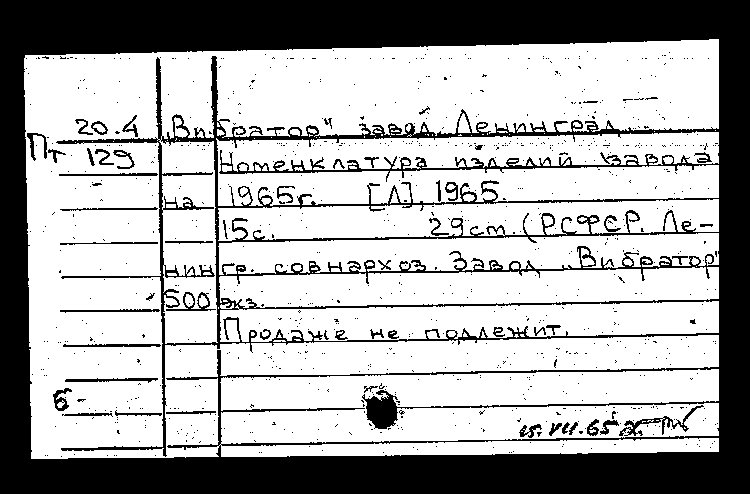 20.4 „Вибратор", завод. Ленинград.
Пт 129 Номенклатура изделий завода
на 1965г. [Л.], 1965.
15с. 29см. (РСФСР. Ле-
нингр. совнархоз. Завод „Вибратор"
500 экз.
Продаже не подлежит.
б-
15.VII.65